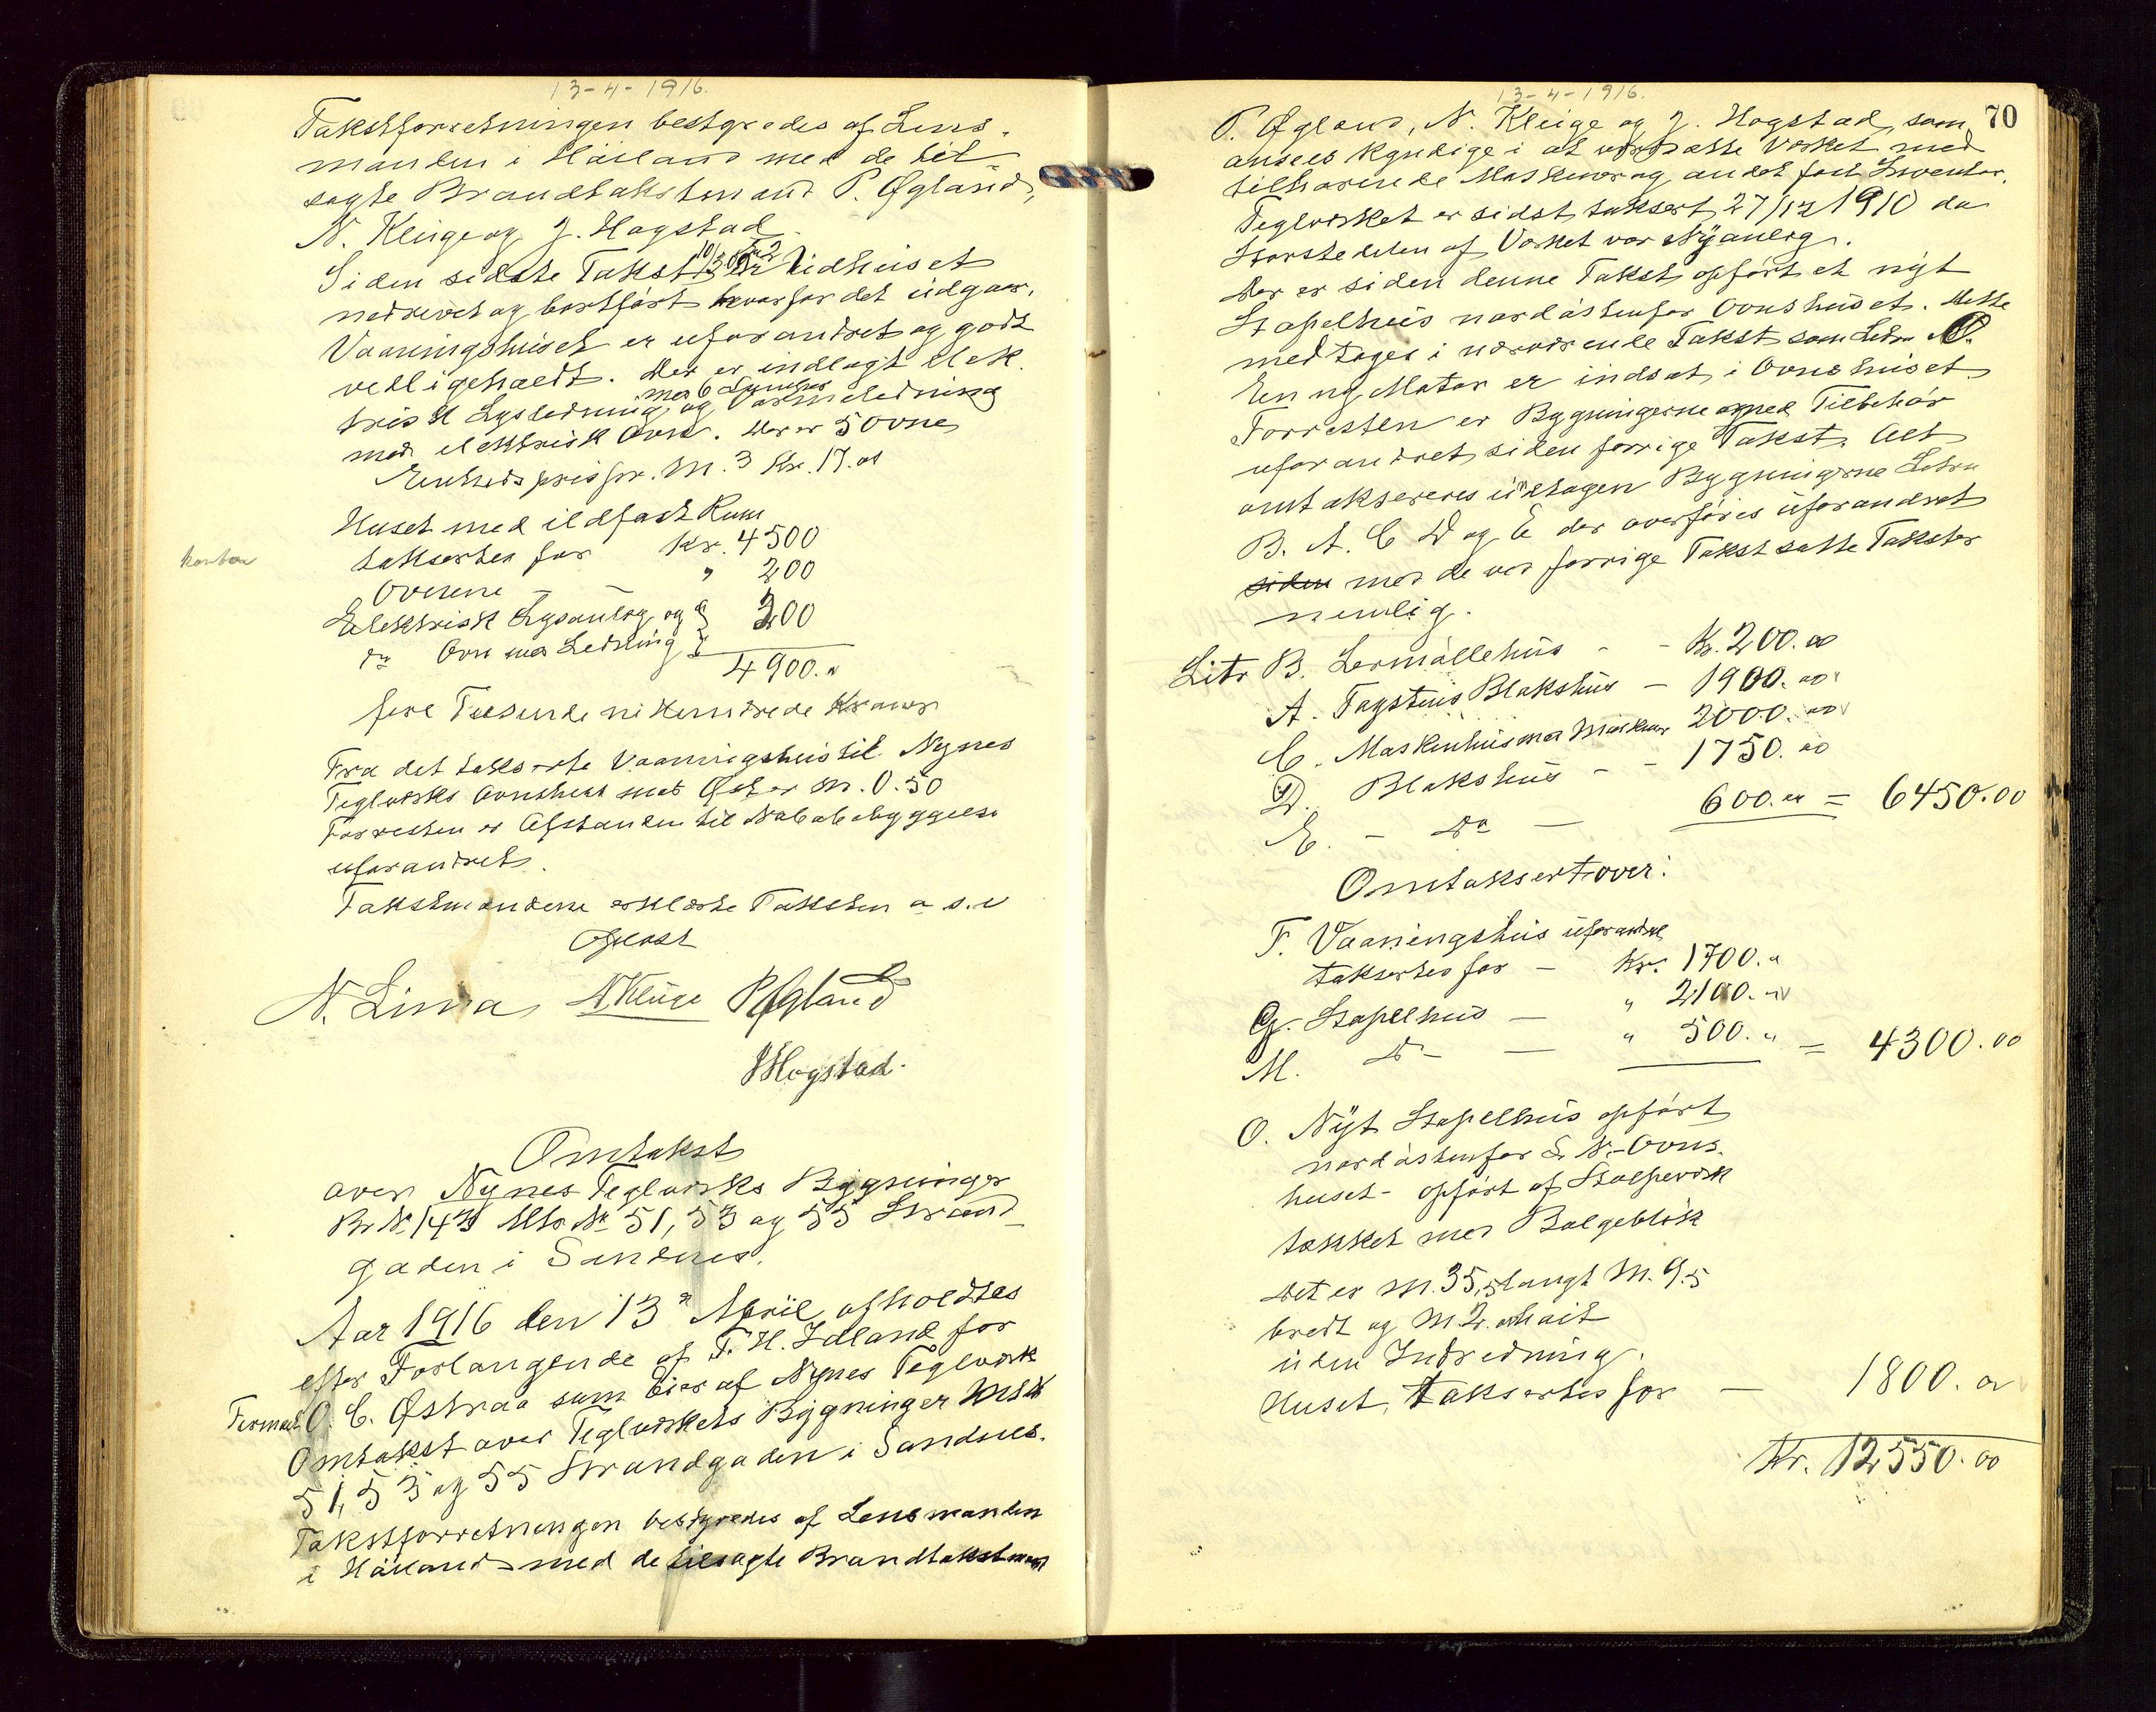 13-4-1916.
Takstforretningen bestyredes af Lens-
manden i Håiland med de til-
sagte Brandtakstmænd P. Øgland,
N. Kluge og J. Hogstad.
Siden sidste Takst er Ildhuset
nedrevet og bortført hvorfor det udgaar.
Vaaningshuset er uforandret og godt
vedligeholdt. Der er indlagt Elek
med 6 Lamper
trisk Lysledning og Varmeledning
med elektrisk Ovn. Der er 5 Ovne
Enhedspris pr. M.3 Kr. 17.00
Huset med ildfast Rum
takseres for Kr. 4500
Ovnene — " 200
Elektrisk Lysanlæg og } 200
do Ovn med Ledning }
4900.00
fire Tusende nihundrede Kroner
Fra det takserte Vaaningshus til Nynes
Teglværks Ovnshus mod Øst er M. 0.50
Forresten er Afstanden til Nabobebyggelse
uforandret.
Takstmændene erklærte Taksten o. s. v
Oplæst
N. Lima NKluge PØgland
JHogstad.
Omtakst
over Nynes Teglværks Bygninger
Br. N. 143 Mtr. No 51, 53 og 55 Strand-
gaden i Sandnes.
Aar 1916 den 13de April afholdtes
efter Forlangende af T. H. Idland for
Firmaet O. C. Østraa som Eier af Nynes Teglværk
Omtakst over Teglværkets Bygninger Mtr.
51, 53 og 55 Strandgaden i Sandnes.
Takstforretningen bestyredes af Lensmanden
i Håiland med de tilsagte Brandtakstmænd
13-4-1916.
70
P. Øgland, N. Kluge og J. Hogstad, som
ansees kyndige i at værdsætte Værket med
tilhørende Maskiner og andet fast Inventar.
Teglværket er sidst taksert 27/12 1910 da
Størstedelen af Værket var Nyanlæg.
Der er siden denne Takst opført et nyt
Stapelhus nordøstenfor Ovnshuset. Dette
medtages i nærværende Takst som Litra O.
En ny Motor er indsat i Ovnshuset
Forresten er Bygningerne med Tilbehør
uforandret siden forrige Takst. Alt
omtakseres undtagen Bygningerne Litra
B. A. C D og E der overføres uforandret
siden med de ved forrige Takst satte Takster
nemlig.
Litr B. Lermøllehus - - Kr. 200.00
A. Tagstens Blakshus — 1900.00
C. Maskinhus med Maskiner 2000.00
D. Blakshus - - 1750.00
E. — Do — 600.00 = 6450.00
Omtaksert over:
F. Vaaningshus uforandret
takseres for — Kr. 1700.00
G. Stapelhus — " 2100.00
M. Do — " 500.00 = 4300.00
O. Nyt Stapelhus opført
nordøstenfor L. N. - Ovns-
huset - opført af Stolpeværk
tækket med Bølgeblik
Det er M. 35,5 langt M. 9.5
bredt og M 2. høit
uden Indredning.
Huset takseres for — 1800.00
Kr. 12550.00